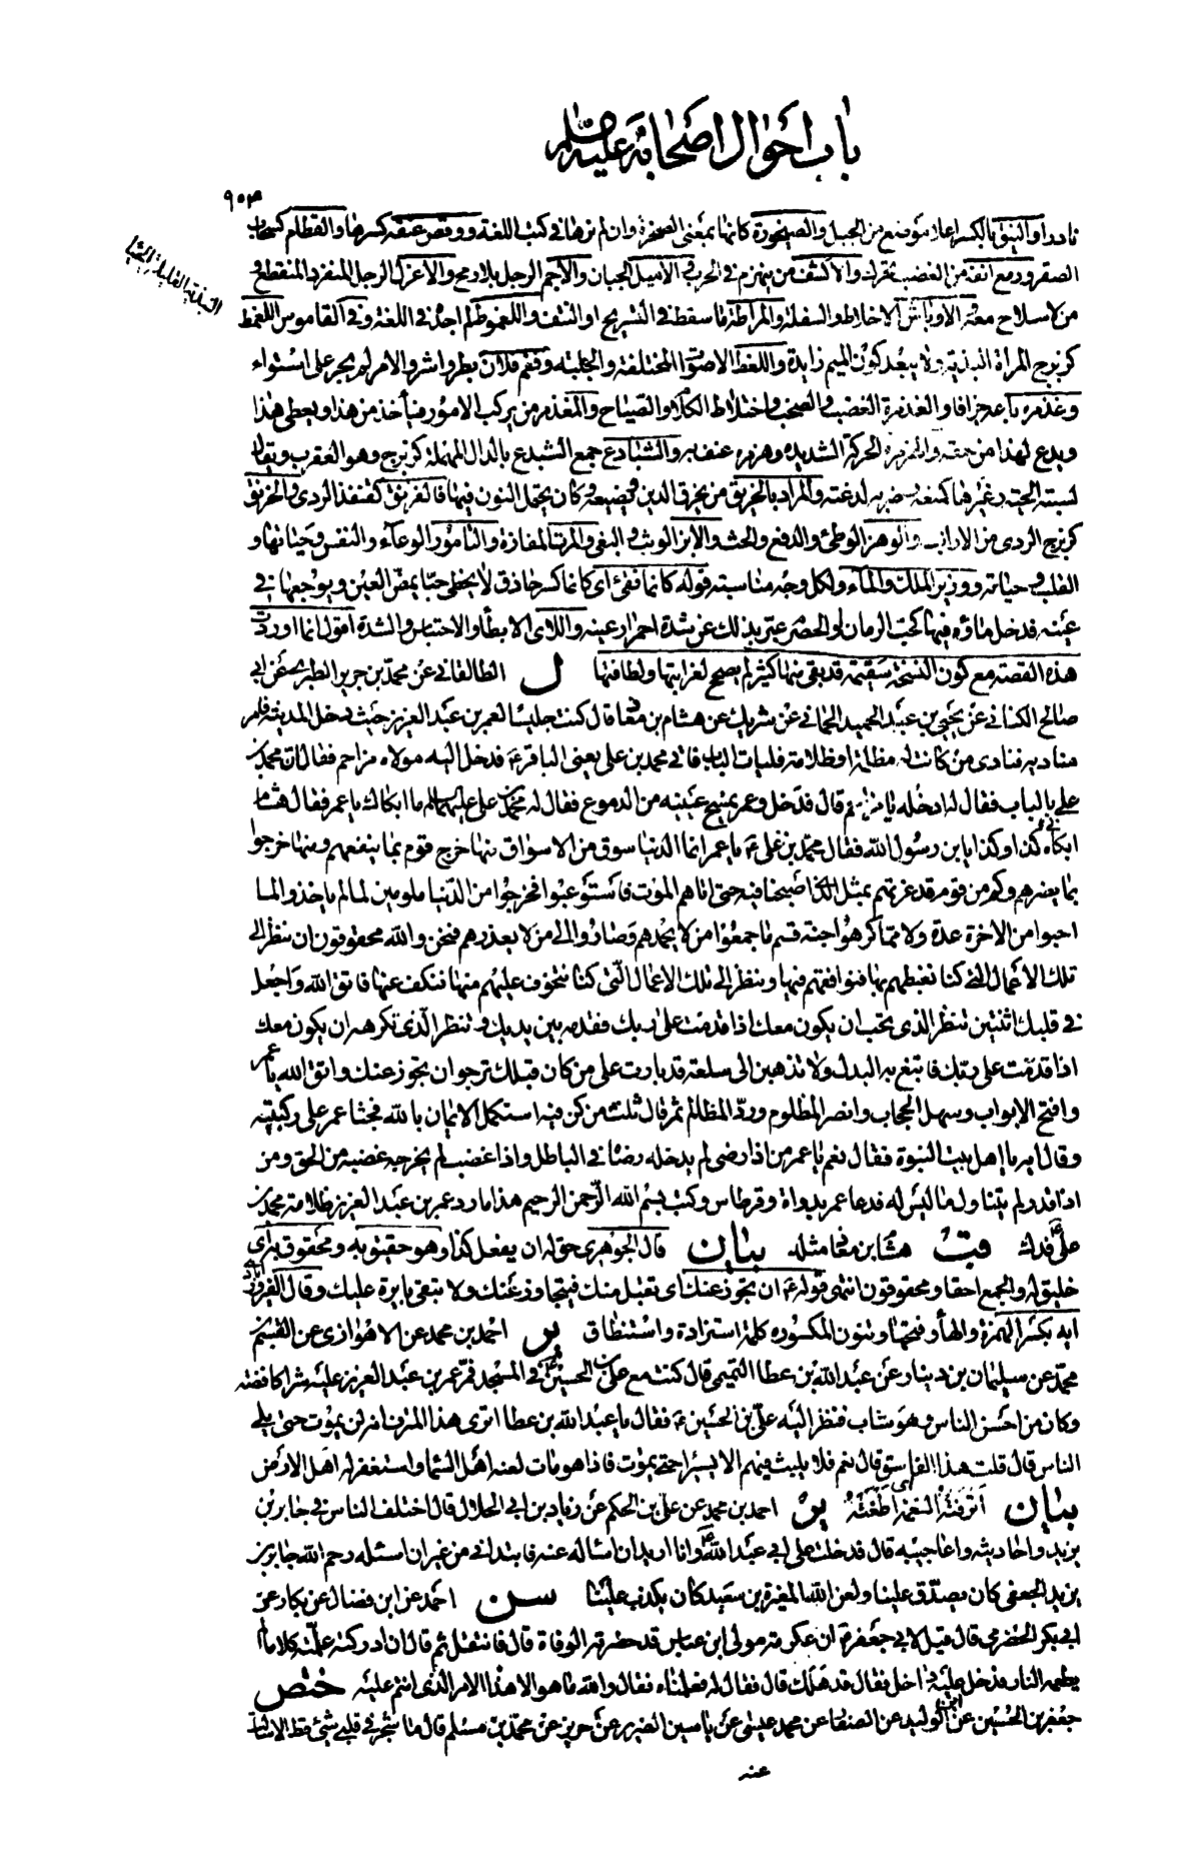 باب احوال اصحابه عليه صلم
٩٥٣
نادرا والنيق بالكسر اعلا موضع من الجبل والصيخودة كانها بمعنى الصخرة وان لم نرها في كتب اللغة ووقص عنقه كسرها والقطام كسحاب
الصقر ورمع انفه من الغضب تحرك والاكشف من ينهزم في الحرب والاميل الجبان والاجم الرجل بلا رمح والاعزل الرجل المنفرد المنقطع و
من لا سلاح معه والاوباش الاخلاط والسفلة والمراطة ما سقط في التسريح او النتف واللغموط لم اجده في اللغة وفي القاموس اللعمط
كزبرج المراة البذية ولا يبعد كون الميم زايدة واللغط الاصوات المختلفة والجلبة وفغم فلان بطر واشر والامر لم يجر على استواء
وغذمره باعه جزافا والغذمرة الغضب والصخب واختلاط الكلام والصياح والمغذمر من يركب الامور فياخذ من هذا ويعطى هذا
ويدع لهذا من حقه والهزهزة الحركة الشديدة وهزهزه عنف به والشبادع جمع الشبدع بالدال المهملة كزبرج وهو العقرب ويقال
لسبته الحية وغيرها كمنعه وضربه لدغته والمراد بالخريق من يخرق الدين ويضيعه وكان يحتمل النون فيها فالخرنق كقنفذ الردى والخرنق
كزبرج الردى من الارانب والوهز الوطئ والدفع والحث والابز الوثب والبغى والمرت المفازة والتامور الوعاء والنفس وحياتها و
القلب وحياته ووزير الملك والماء ولكل وجه مناسبة قوله كانما فقئ اى كانما كسر حاذق لا يخطى حبا يمض العين ويوجعها في
عينه فدخل ماؤه فيها كحب الرمان او الحصرم عبر بذلك عن شدة احمرار عينه واللاى الابطأ والاحتباس والشدة اقول انما اوردت
هذه القصة مع كون النسخة سقيمة قد بقى منها كثير لم يصح لغرابتها ولطافتها ل الطالقاني عن محمد بن جرير الطبرى عن ابي
صالح الكناني عن يحيى بن عبد الحميد الحماني عن شريك عن هشام بن معاذ قال كنت جليسا لعمر بن عبد العزيز حيث دخل المدينة فامر
مناديه فنادى من كانت له مظلمة او ظلامة فليات الباب فاتى محمد بن على يعنى الباقر ع فدخل اليه مولاه مزاحم فقال ان محمد بن
على بالباب فقال له ادخله يا مزاحم قال فدخل وعمر يمسح عينيه من الدموع فقال له محمد بن على عليهما السلام ما ابكاك يا عمر فقال هشام
ابكاه كذا وكذا يا بن رسول الله فقال محمد بن على ع يا عمر انما الدنيا سوق من الاسواق منها خرج قوم بما ينفعهم ومنها خرجوا
بما يضرهم وكم من قوم قد غرتهم بمثل الذى اصبحنا فيه حتى اتاهم الموت فاستوعبوا فخرجوا من الدنيا ملومين لما لم ياخذوا لما
احبوا من الاخرة عدة ولا مما كرهوا جنة قسم ما جمعوا من لا يحمدهم وصاروا الى من لا يعذرهم فنحن والله محقوقون ان ننظر الى
تلك الاعمال التى كنا نغبطهم بها فنوافقهم فيها وننظر الى تلك الاعمال التى كنا نتخوف عليهم منها فنكف عنها فاتق الله واجعل
في قلبك اثنتين تنظر الذى تحب ان يكون معك اذا قدمت على ربك فقدمه بين يديك وتنظر الذى تكرهه ان يكون معك
اذا قدمت على ربك فابتغ به البدل ولا تذهبن الى سلعة قد بارت على من كان قبلك ترجو ان تجوز عنك واتق الله يا عمر
وافتح الابواب وسهل الحجاب وانصر المظلوم ورد المظالم ثم قال ثلث من كن فيه استكمل الايمان بالله فجثا عمر على ركبتيه
وقال ايه يا اهل بيت النبوة فقال نعم يا عمر من اذا رضى لم يدخله رضاه في الباطل واذا غضب لم يخرجه غضبه من الحق ومن
اذا قدر لم يتناول ما ليس له فدعا عمر بدواة وقرطاس وكتب بسم الله الرحمن الرحيم هذا ما رد عمر بن عبد العزيز ظلامة محمد بن
على ع فدك قب هشام بن معاذ مثله بيان قال الجوهرى حق له ان يفعل كذا وهو حقيق به ومحقوق به اى
خليق له والجمع احقاء ومحقوقون انتهى قوله ع ان تجوز عنك اى تقبل منك فيتجاوز عنك ولا تبقى بايرة عليك وقال الفيروزآبادى
ايه بكسر الهمزة والهاء وفتحها وتنون المكسورة كلمة استزادة واستنطاق ير احمد بن محمد عن الاهوازى عن القسم بن
محمد عن سليمان بن دينار عن عبد الله بن عطا التميمى قال كنت مع على بن الحسين ع في المسجد فمر عمر بن عبد العزيز عليه شراكا فضة
وكان من احسن الناس وهو شاب فنظر اليه على بن الحسين ع فقال يا عبد الله بن عطا اترى هذا المترف انه لن يموت حتى يلى
الناس قال قلت هذا الفاسق قال نعم فلا يلبث فيهم الا يسيرا حتى يموت فاذا هو مات لعنه اهل السماء واستغفر له اهل الارض
بيان اترفته النعمة اى اطغته ير احمد بن محمد عن على بن الحكم عن زياد بن ابى الحلال قال اختلف الناس في جابر بن
يزيد واحاديثه واعاجيبه قال فدخلت على ابى عبد الله ع وانا اريد ان اساله عنه فابتدانى من غير ان اسئله رحم الله جابر بن
يزيد الجعفى كان يصدق علينا ولعن الله المغيرة بن سعيد كان يكذب علينا سن احمد عن ابن فضال عن بكار عن
ابى بكر الحضرمى قال قيل لابى جعفر ع ان عكرمة مولى ابن عباس قد حضرته الوفاة قال فانتقل ثم قال ان ادركته علمته كلاما لم
يطعمه النار فدخل عليه داخل فقال قد هلك قال فقال له فعلمناه فقال والله ما هو الا هذا الامر الذى انتم عليه ختص
جعفر بن الحسين عن ابن الوليد عن الصفار عن محمد بن عيسى عن ياسين الضرير عن حريز عن محمد بن مسلم قال ما شجر في قلبى شئ قط الا سالت
عنه